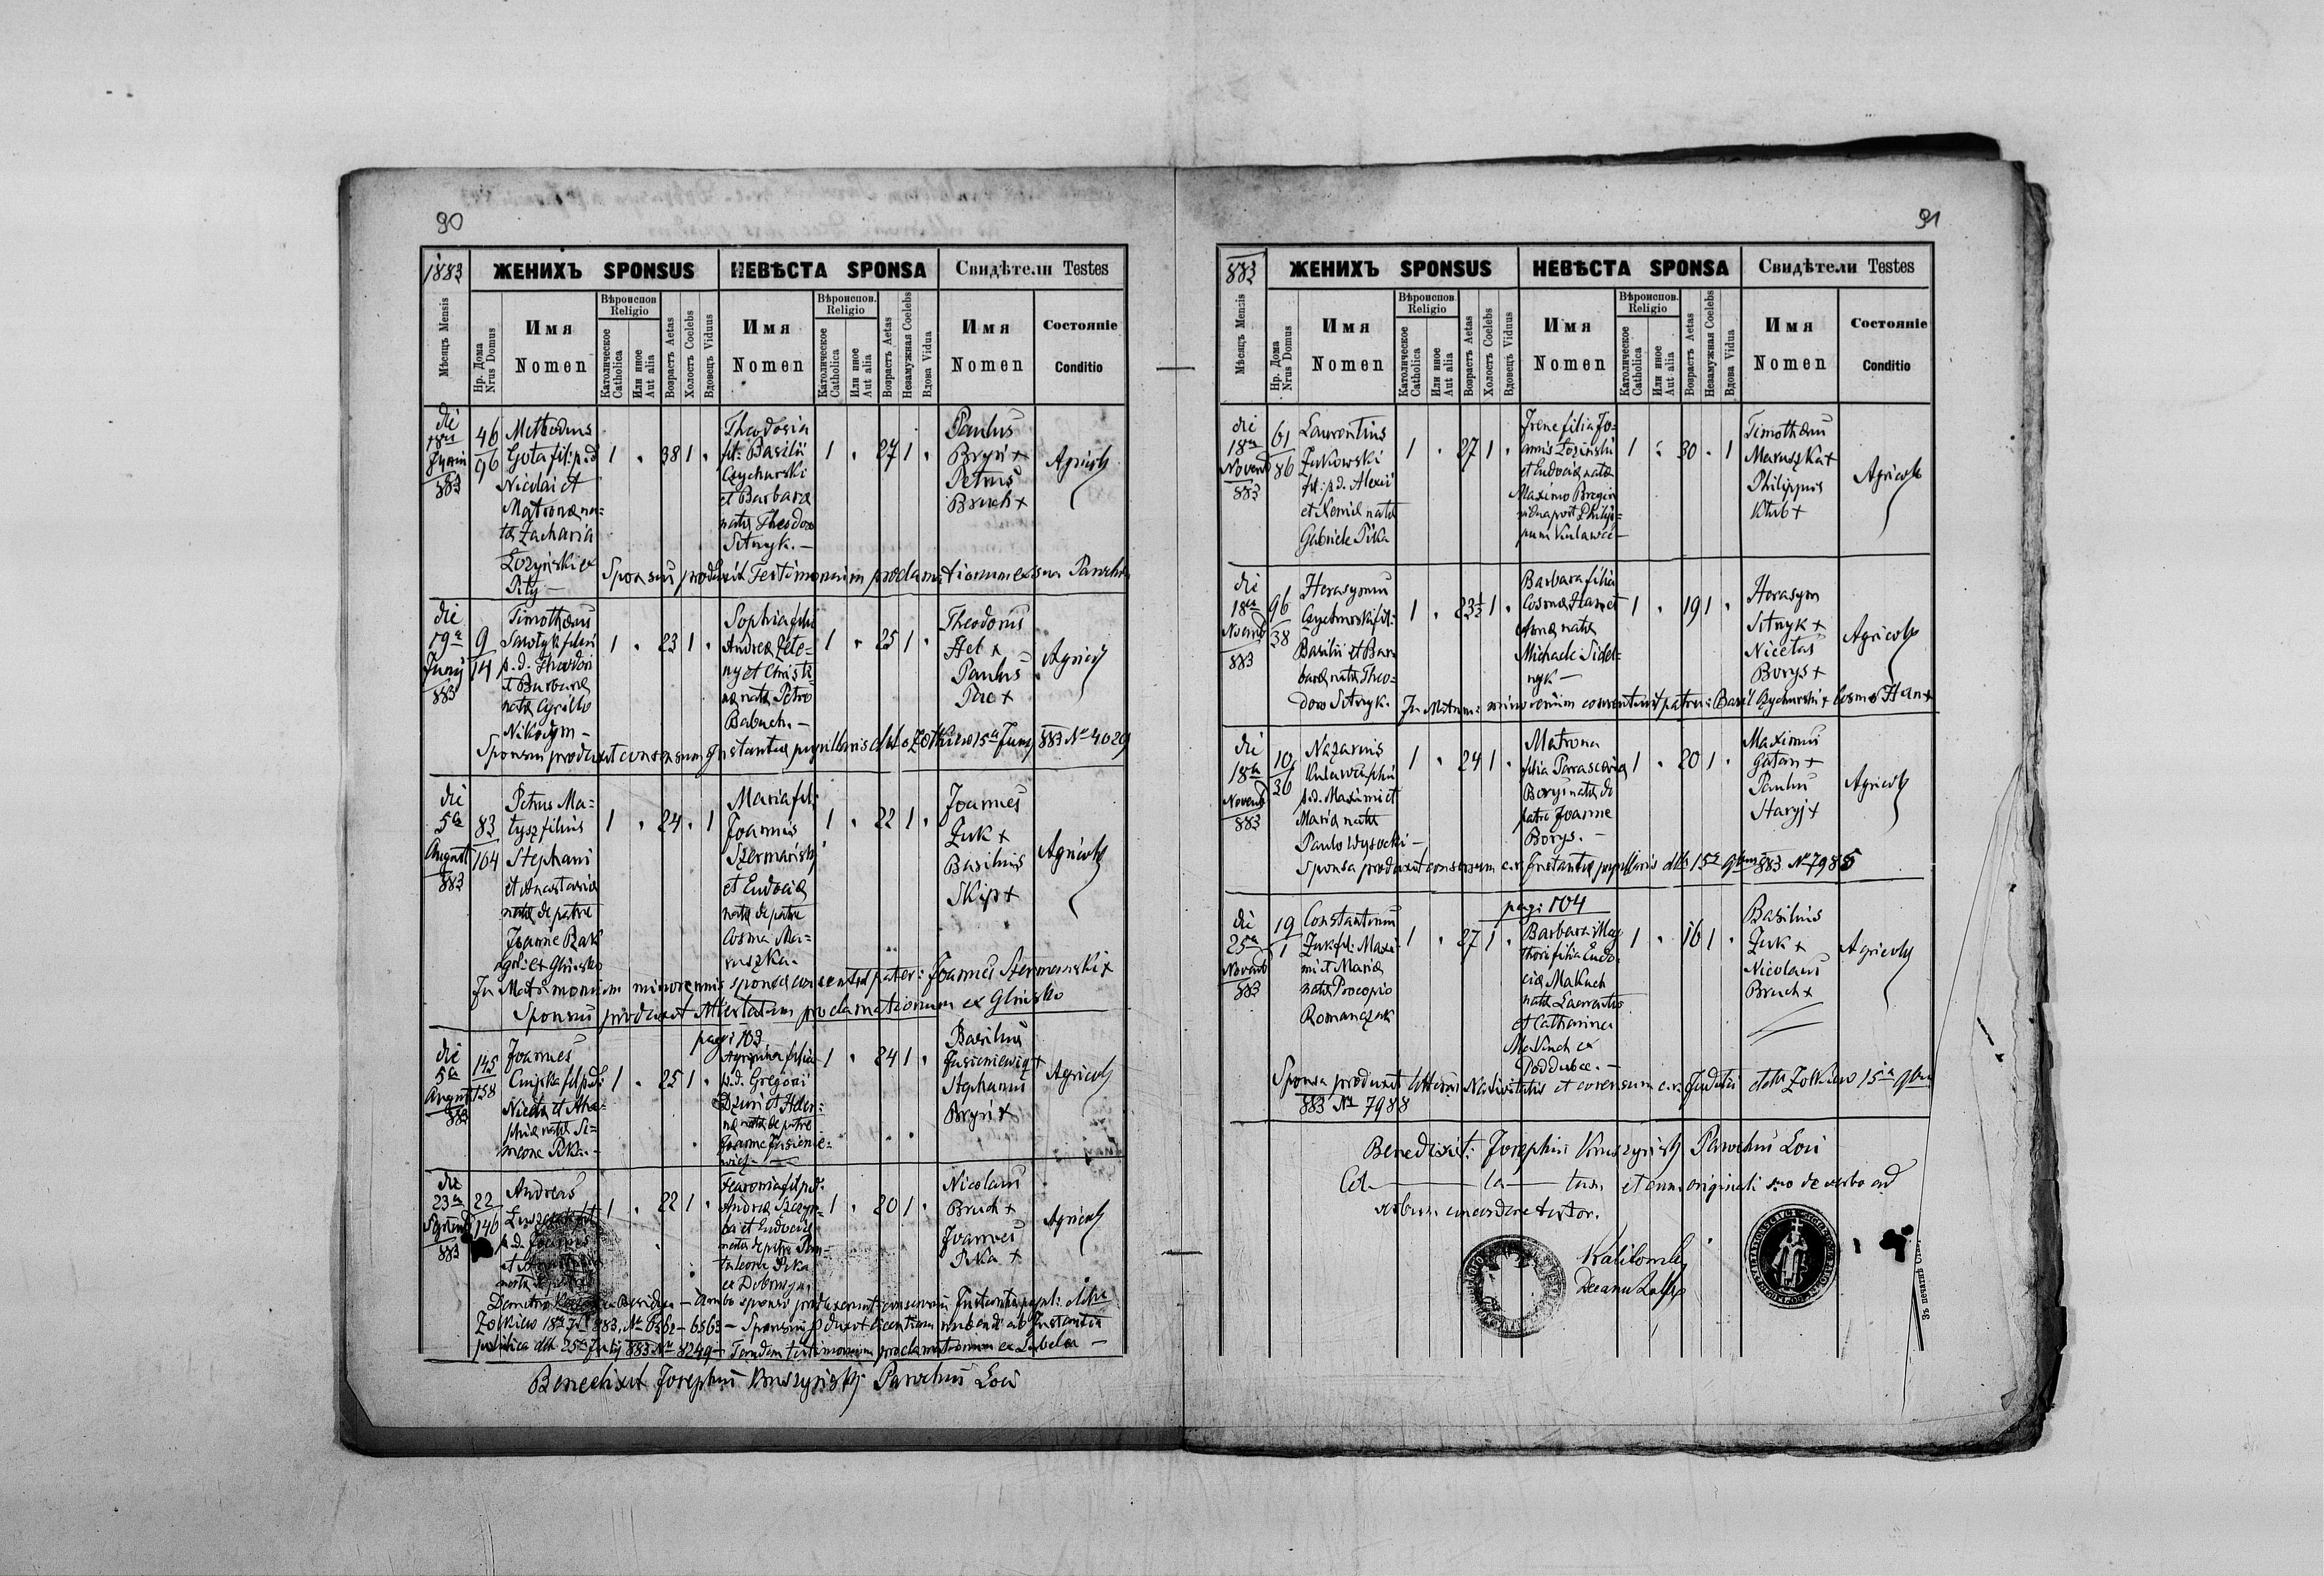 90
1883
ЖЕНИХЪ SPONSUS
НЕВѢСТА SPONSA
Свидѣтели Testes
Мѣсяцъ Mensis
Нр. Дома
Nrus Domus
Имя
Nomen
Вѣроиспов.
Religio
Католическое
Catholica
Или иное
Aut alia
Возрастъ Aetas
Холостъ Coelebs
Вдовецъ Viduus
Имя
Nomen
Вѣроиспов.
Religio
Католическое
Catholica
Или иное
Aut alia
Возрастъ Aetas
Незамужная Coelebs
Вдова Vidua
Имя
Nomen
Состояніе
Conditio
die
18a
Junii
883
46
96
Methodius
Gota fil: p.d.
Nicolai et
Matronae na=
tae Zacharia
Łozyński ex
Pity —
1 38 1
Theodosia
fil: Basilii
Czycharski
et Barbarae
natae Theodoro
Sitnyk. —
1 27 1
Paulus
Bryń +
Petrus
Bruch +
Agricolae
Sponsus produxit Testimonium proclamationum ex sua Parochia
die
19a
Junij
883
9
14
Timotheus
Sawłyk filius
p.d. Theodori
et Barbarae
natae Cyrillo
Nikodym —
1 23 1
Sophia filia
Andreae Zele=
ny et Christi=
nae natae Petro
Babuch. —
1 25 1
Theodorus
Hel +
Paulus
Pac +
Agricolae
Sponsus produxit consensum Instantiae pupillaris ddto Zołkiew 15a Junij 883 No 4029
die
5a
Augusti
883
83
104
Petrus Ma=
tysz filius
Stephani
et Anastasiae
natae de patre
Joanne Bak
agric: ex Glinsko
1 24 1
Maria fil:
Joannis
Szermański
et Eudociae
natae de patre
Cosma Ma=
ruszka.
1 22 1
Joannes
Zuk +
Basilius
Skip +
Agricolae
In Matrimonium minorennis sponsae consentit pater: Joannes Szermanski +
Sponsus produxit Attestatum proclamationum ex Glinsko
die
5a
Augusti
883
145
158
Joannes
fil p.d.
Nicolai et Aha=
phiae natae Si=
meone Pika. —
1 25 1
pagi 103
Agripina filia
p.d. Gregorii
Dziuri et Hele=
nae natae de patre
Joanne Jusienie=
wicz —
1 24 1
Basilius
Jusieniewicz +
Stephanus
Bryń +
Agricolae
die
23a
883
22
146
Andreas
p.d. Joannis
1 22 1
Fewronia fil p.d.
Andreae
et Eudociae
natae de patre Pan=
taleone Pika
ex Dobrosyn
1 20 1
Nicolaus
Bruch +
Joannes
Pika +
Agricolae
Demetrio — Ambo sponsi produxerunt consensum Instantiae pupil: ddto
Zołkiew 883, No 6562 — 6563 — Sponsus produxit licentiam nubendi ab Instantia
politica ddto 25a Julij 883 No 8249 — Tandem testimonium proclamationum ex Lubela —
Benedixit Josephus Kruszyński Parochus Loci
91
883
ЖЕНИХЪ SPONSUS
НЕВѢСТА SPONSA
Свидѣтели Testes
Мѣсяцъ Mensis
Нр. Дома
Nrus Domus
Имя
Nomen
Вѣроиспов.
Religio
Католическое
Catholica
Или иное
Aut alia
Возрастъ Aetas
Холостъ Coelebs
Вдовецъ Viduus
Имя
Nomen
Вѣроиспов.
Religio
Католическое
Catholica
Или иное
Aut alia
Возрастъ Aetas
Незамужная Coelebs
Вдова Vidua
Имя
Nomen
Состояніе
Conditio
die
18a
Novemb
883
61
86
Laurentius
Zukowski
fil: p.d. Alexii
et Xeniae natae
Gabriele Pika
1 27 1
Irene filia Jo=
annis Łozinski
et Eudociae natae
Maximo Bregin
vidua post Philip=
pum Kulawiec —
1 30 1
Timotheus
Maruszka +
Philippus
Klub +
Agricolae
die
18a
Novemb
883
96
38
Herasymus
Czycharski fil:
Basilii et Bar=
barae natae Theo=
doro Sitnyk.
1 23½ 1
Barbara filia
Cosmae Han et
Annae natae
Michaele Sidel=
nyk —
1 19 1
Herasym
Sitnyk +
Nicetas
Borys +
Agricolae
In Matrim: minorennium consentiunt patres: Basil Czycharski + Cosmas Han +
die
18a
Novemb
883
10
36
Nazarius
Kulawiec filius
p.d. Maximi et
Mariae natae
Paulo Wysocki —
1 24 1
Matrona
filia Parasceviae
Borys natae de
patre Joanne
Borys. —
1 20 1
Maximus
Gatan +
Paulus
Haryj +
Agricolae
Sponsa produxit consensum c.r. Instantiae pupillaris ddto 15a 9bris 883 No 7985
die
25a
Novemb
883
19
1
Constantinus
Zuk fil: Maxi=
mi et Mariae
natae Procopio
Romanczuk
1 27 1
pagi 104
Barbara illeg
thori filia Eudo=
ciae Makuch
natae Laurentio
et Catharina
Makuch ex
Poddubce. —
1 16 1
Basilius
Zuk +
Nicolaus
Bruch +
Agricolae
Sponsa produxit Litteras Nativitatis et consensum c.r. Judicii ddto Zołkiew 15a 9bris
883 No 7988
Benedixit: Josephus Kruszyński Parochus Loci
Col — la — tum et cum originali suo de verbo ad
verbum concordare testor.